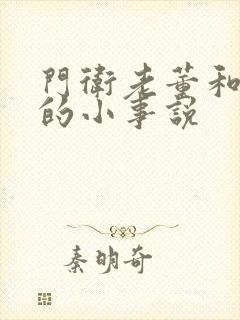 門衛老董和
的小事說
秦明奇